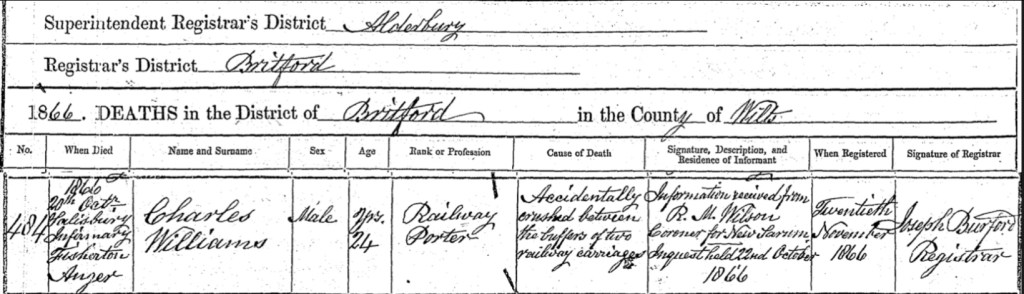 Superintendent Registrar's District Alderbury
Registrar's District Britford
1866. DEATHS in the District of Britford in the County of Wilts
No. When Died Name and Surname Sex Age Rank or Profession Cause of Death Signature, Description, and Residence of Informant When Registered Signature of Registrar
484
1866
20th Octr
Salisbury
Infirmary
Fisherton
Anger
Charles
Williams
Male
yrs.
24
Railway
Porter
Accidentally
crushed between
the buffers of two
railway carriages
Information received from
R. M. Wilson
Coroner for New Sarum
Inquest held 22nd October
1866
Twentieth
November
1866
Joseph Burford
Registrar